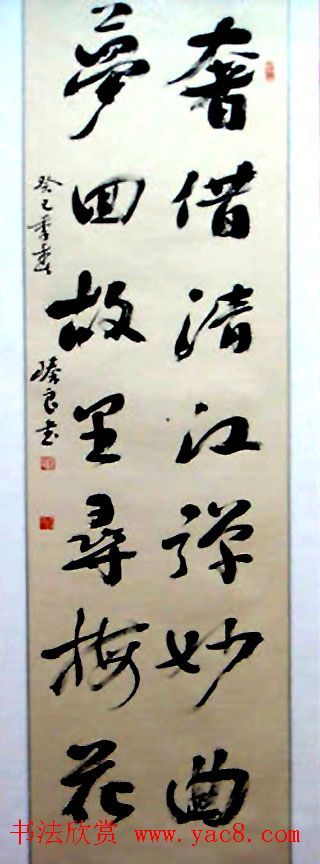 奢借清江弹妙曲
夢回故里尋梅花
癸巳季春
良书
书法欣赏 www.yac8.com